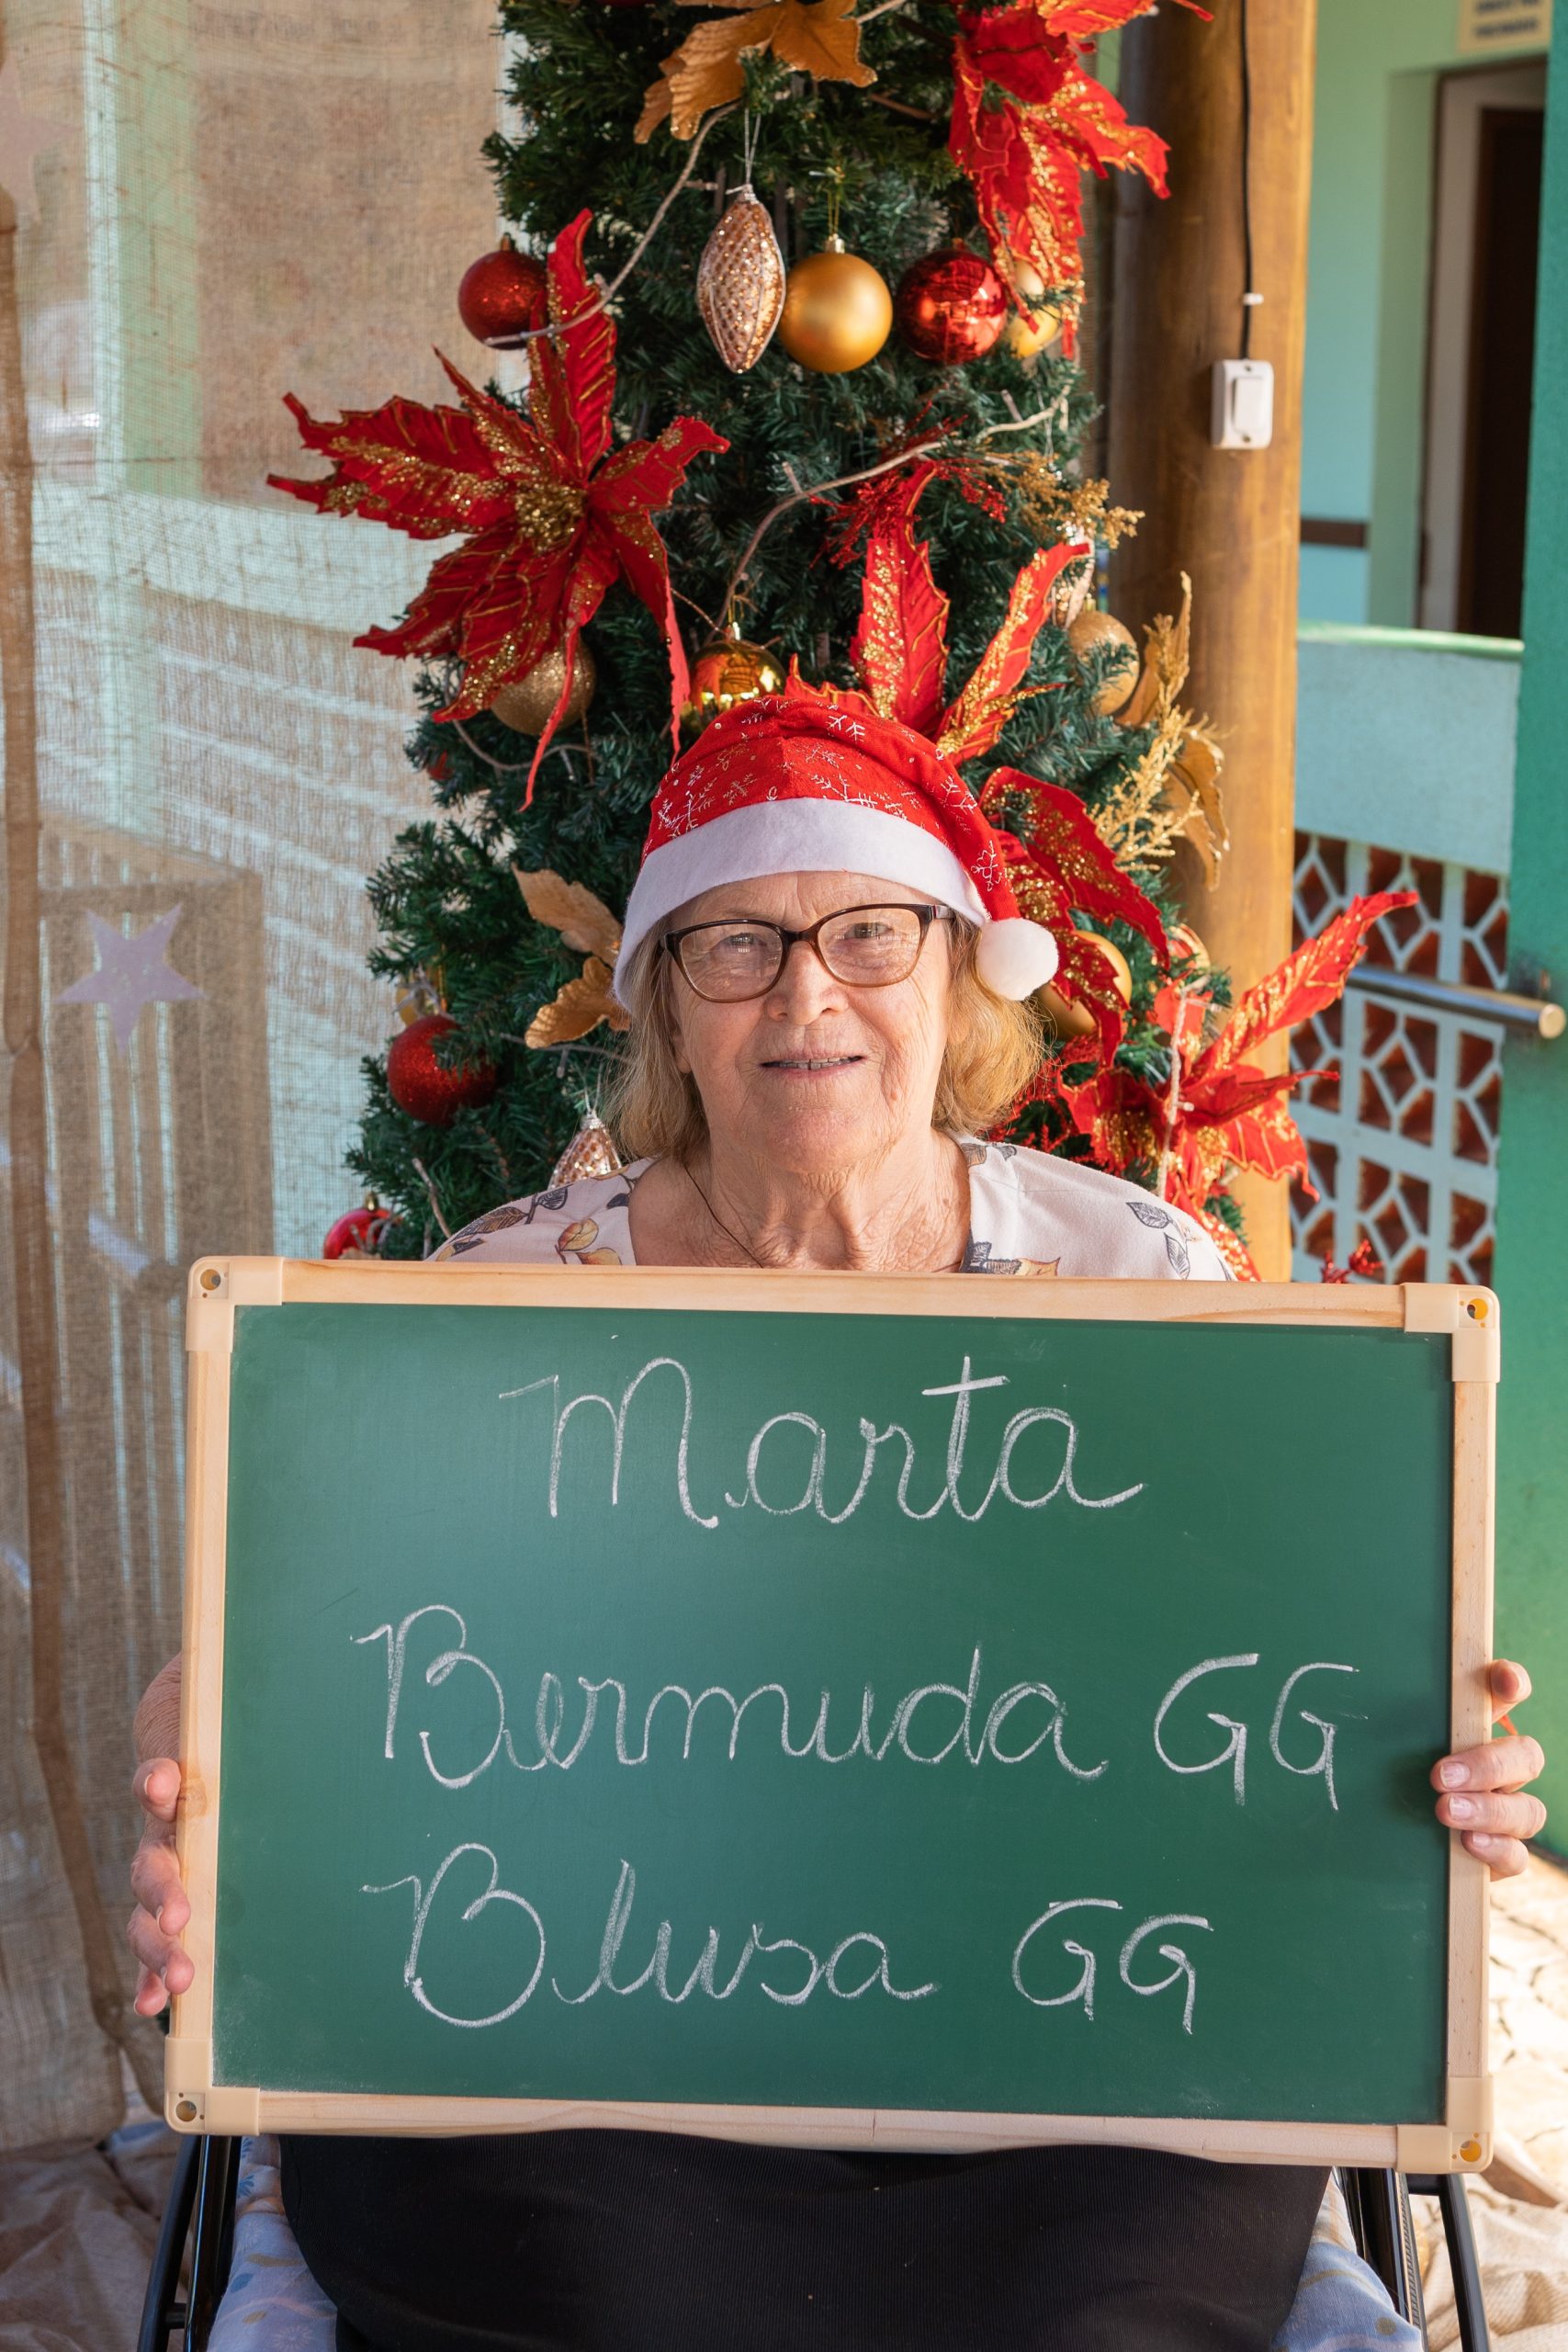 Marta
Bermuda GG
Blusa GG